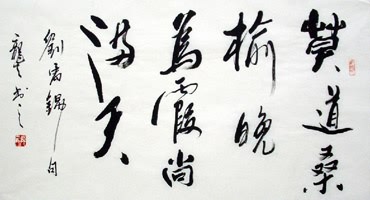 莫道桑
榆晚
為霞尚
满天
劉禹錫句
书之